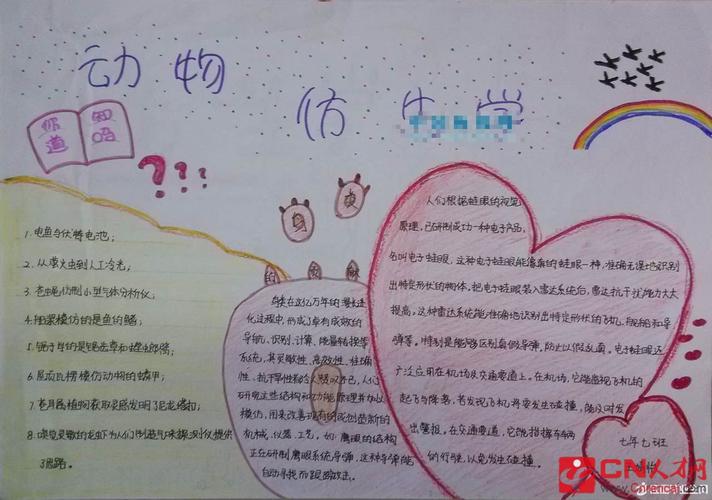 动物
仿生学
你知道吗
???
1.电鱼与伏特电池;
2.从萤火虫到人工冷光;
3.苍蝇仿制小型气体分析仪;
4.船桨模仿的是鱼的鳍;
5.锯子学的是锯齿草和螳螂臂;
6.屋顶瓦楞模仿动物的鳞甲;
7.苍耳属植物获取灵感发明了尼龙搭扣;
8.嗅觉灵敏的龙虾为人们制造气味探测仪提供
了思路。
鸟类在过亿万年的漫长进
化过程中,形成了卓有成效的
导航、识别、计算、能量转换等
系统,其灵敏性、高效性、准确
性、抗干扰性都令人惊叹不已,人们
研究这些结构和功能原理并加以
模仿,用来改善现有的或创造新的
机械、仪器、工艺,如:鹰眼的结构
正在研制鹰眼系统导弹,这种导弹能
自动寻找而跟踪攻击。
人们根据蛙眼的视觉
原理,已研制成功一种电子产品,
名叫电子蛙眼,这种电子蛙眼能像真的蛙眼一样,准确无误地识别
出特定形状的物体。把电子蛙眼装入雷达系统后,雷达抗干扰能力大大
提高。这种雷达系统能准确地识别出特定形状的飞机、舰船和导
弹等。特别是能够区别真假导弹,防止以假乱真。电子蛙眼还
广泛应用在机场及交通要道上。在机场,它能监视飞机的
起飞与降落,若发现飞机将要发生碰撞,能及时发
出警报。在交通要道,它能指挥车辆
的行驶,以免发生碰撞。
七年七班
CN人才网
cnrencai.com